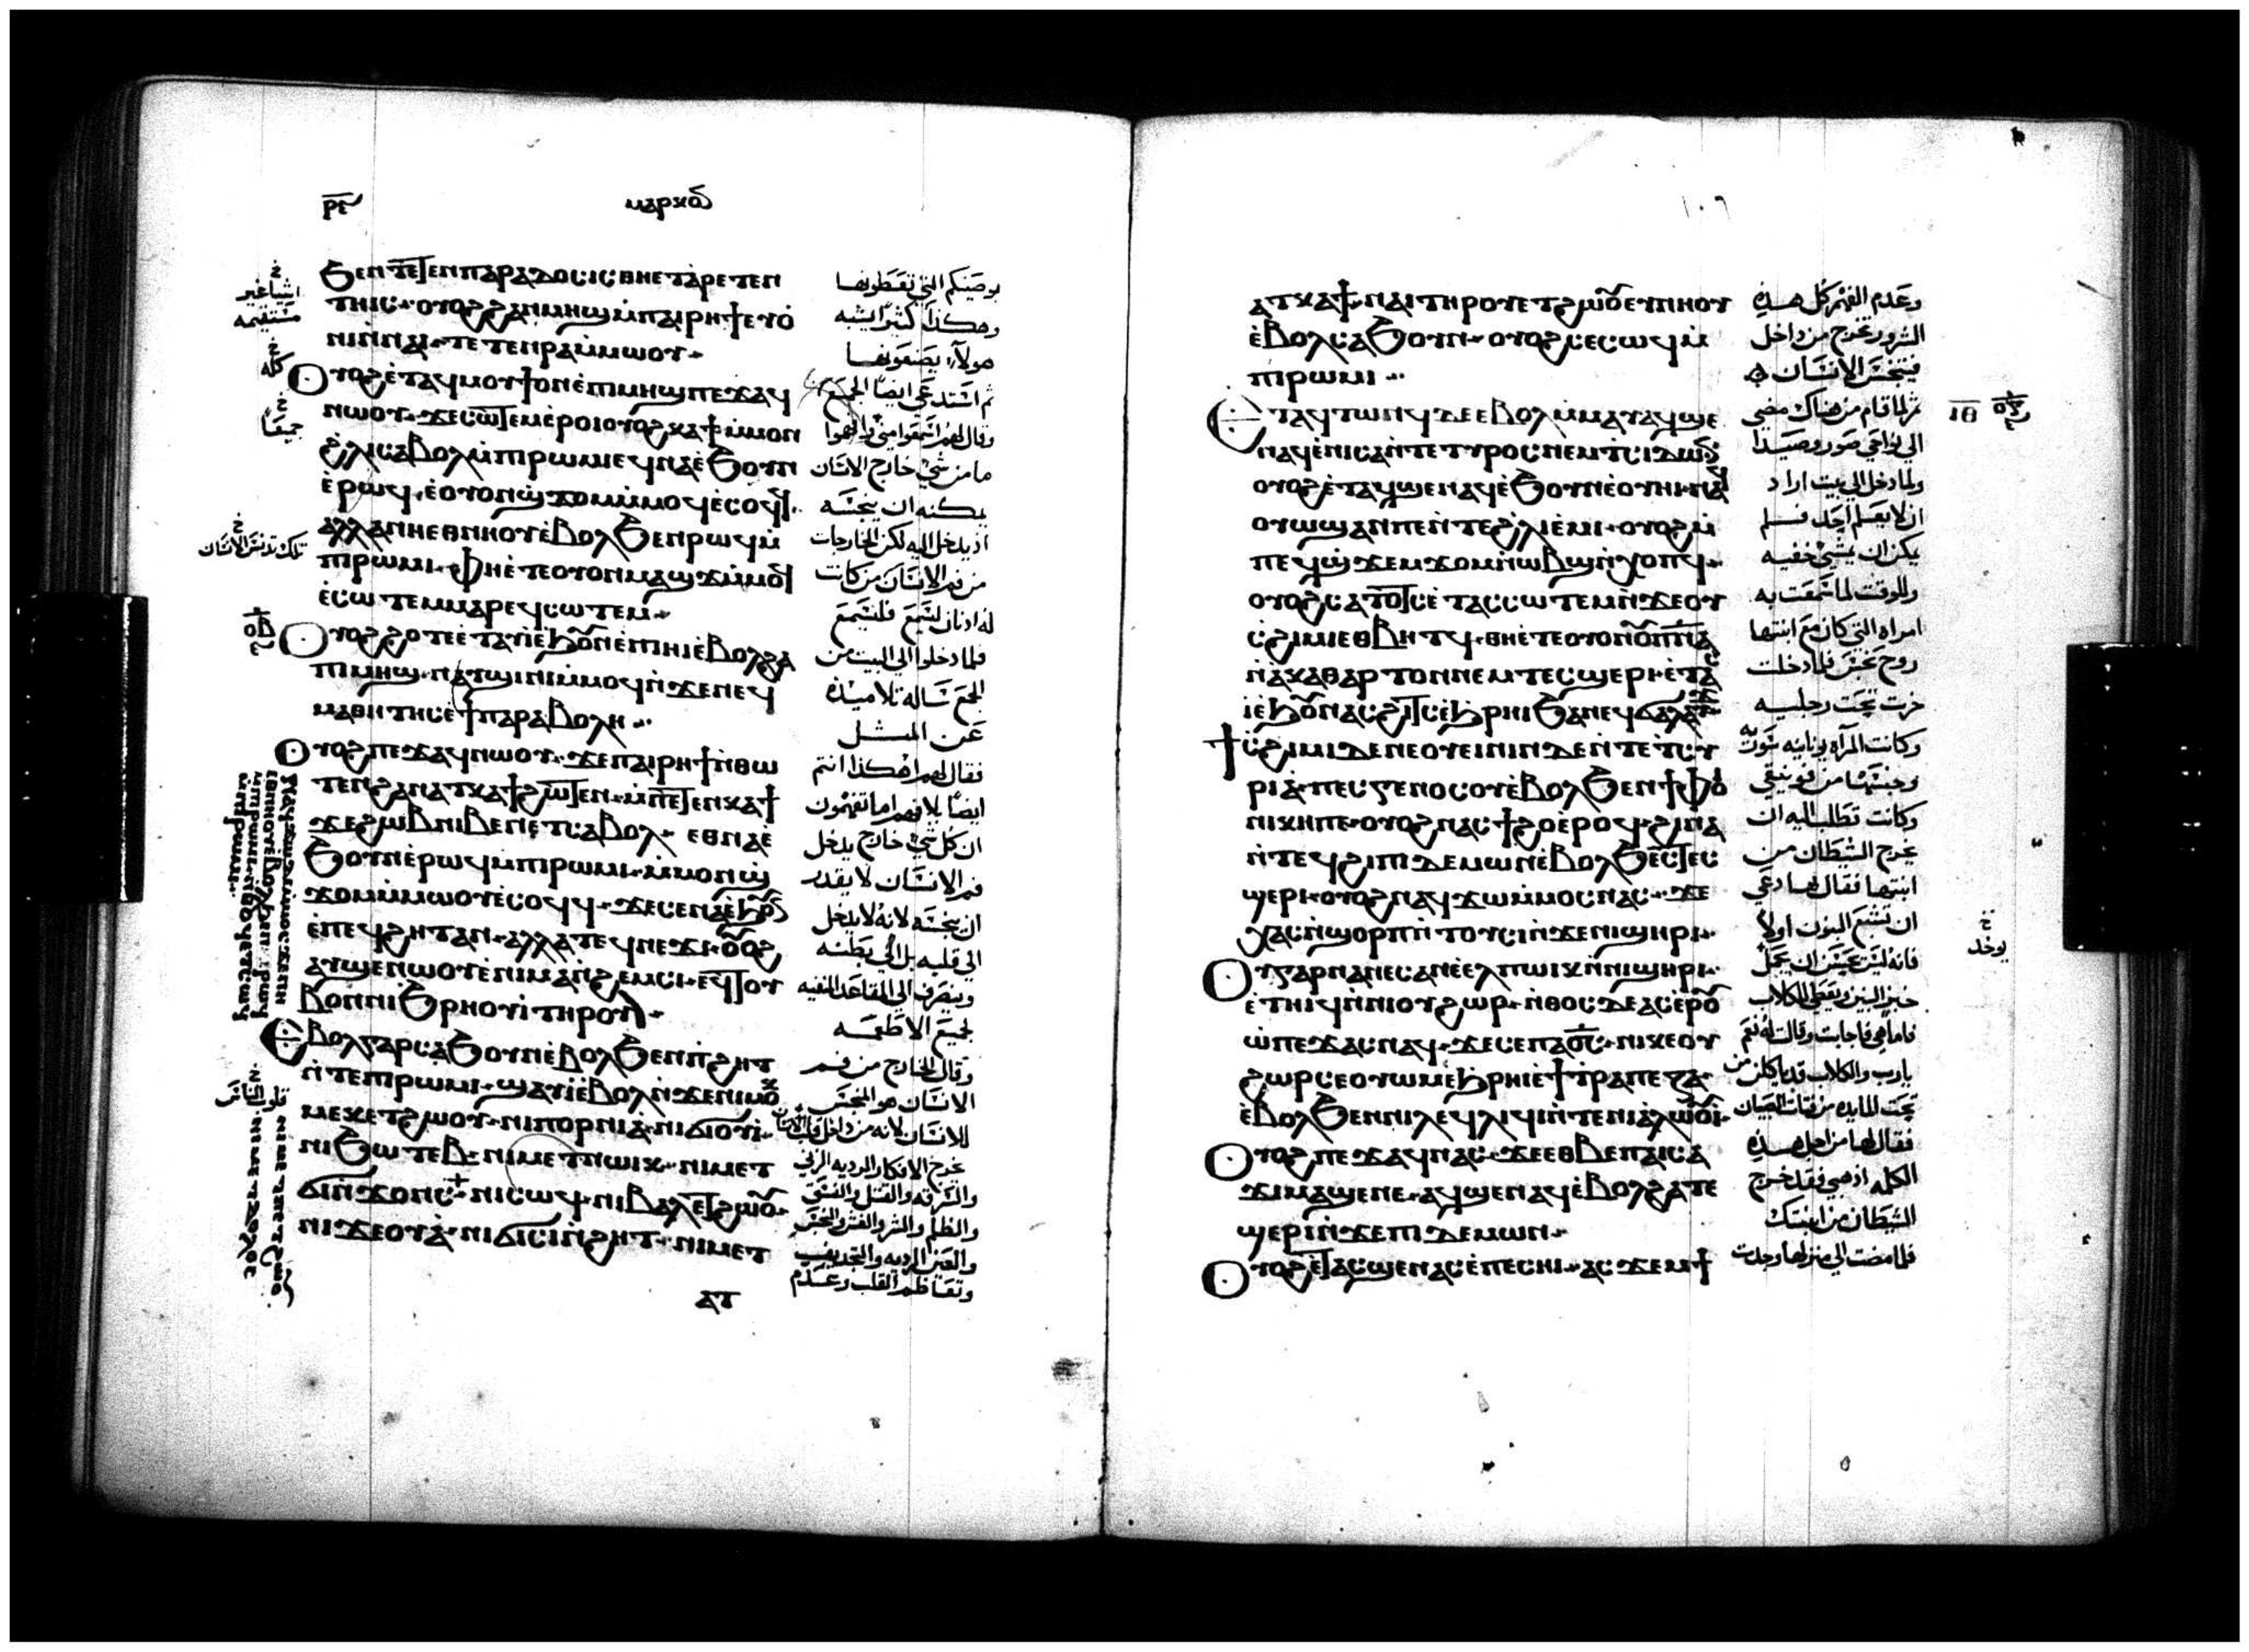 ⲙⲁⲣⲕⲟⲥ
ϧⲉⲛ ⲧⲉⲧⲉⲛⲡⲁⲣⲁⲇⲟⲥⲓⲥ ⲑⲏⲉⲧⲁⲣⲉⲧⲉⲛ
ⲧⲏⲓⲥ ⲟⲩⲟϩ ϩⲁⲛⲙⲏϣ ⲙⲡⲁⲓⲣⲏϯ ⲉⲧⲟ
ⲛⲓ ⲛⲛⲁⲓ ⲧⲉⲧⲉⲛⲣⲁ ⲙⲙⲱⲟⲩ
ⲟⲩⲟϩ ⲉⲧⲁϥⲙⲟⲩϯ ⲟⲛ ⲉⲡⲓⲙⲏϣ ⲡⲉϫⲁϥ
ⲛⲱⲟⲩ ϫⲉ ⲥⲱⲧⲉⲙ ⲉⲣⲟⲓ ⲟⲩⲟϩ ⲕⲁϯ ⲙⲙⲟⲛ
ϩⲗⲓ ⲥⲁⲃⲟⲗ ⲙⲡⲓⲣⲱⲙⲓ ⲉϥⲛⲁ ⲉϧⲟⲩⲛ
ⲉⲣⲱϥ ⲉⲟⲩⲟⲛϣϫⲟⲙ ⲙⲙⲟϥ ⲉⲥⲟϥϥ
ⲁⲗⲗⲁ ⲛⲏⲉⲑⲛⲏⲟⲩ ⲉⲃⲟⲗϧⲉⲛ ⲣⲱϥ ⲙ
ⲡⲓⲣⲱⲙⲓ ⲫⲏⲉⲧⲉ ⲟⲩⲟⲛ ⲙⲁϣϫ ⲙⲙⲟϥ
ⲉⲥⲱⲧⲉⲙ ⲙⲁⲣⲉϥⲥⲱⲧⲉⲙ
ⲟⲩⲟϩ ϩⲟⲧⲉ ⲉⲧⲁϥⲓ ⲉϧⲟⲩⲛ ⲉⲡⲓⲏⲓ ⲉⲃⲟⲗϩⲁ
ⲡⲓⲙⲏϣ ⲛⲁⲩϣⲓⲛⲓ ⲙⲙⲟϥ ⲛϫⲉ ⲛⲉϥ
ⲙⲁⲑⲏⲧⲏⲥ ⲉϯⲡⲁⲣⲁⲃⲟⲗⲏ
ⲟⲩⲟϩ ⲡⲉϫⲁϥ ⲛⲱⲟⲩ ϫⲉ ⲡⲁⲓⲣⲏϯ ⲛⲑⲱ
ⲧⲉⲛ ϩⲁⲛⲁⲧⲕⲁϯ ϩⲱⲧⲉⲛ ⲙⲡⲉⲧⲉⲛⲕⲁϯ
ϫⲉ ϩⲱⲃ ⲛⲓⲃⲉⲛ ⲉⲧⲥⲁⲃⲟⲗ ⲉⲑⲛⲁ ⲉ
ϧⲟⲩⲛ ⲉⲣⲱϥ ⲙⲡⲓⲣⲱⲙⲓ ⲙⲙⲟⲛϣ
ϫⲟⲙ ⲙⲙⲱⲟⲩ ⲉⲥⲟϥϥ ϫⲉ ⲥⲉⲛⲁ ⲉϧⲟⲩⲛ
ⲉⲡⲉϥϩⲏⲧ ⲁⲛ ⲁⲗⲗⲁ ⲧⲉϥⲛⲉϫⲓ ⲟⲩⲟϩ
ⲁⲩϣⲉⲛⲱⲟⲩ ⲉⲛⲓⲙⲁⲛϩⲉⲙⲥⲓ ⲉϥⲧⲟⲩ
ⲃⲟ ⲛⲛⲓϧⲣⲏⲟⲩⲓ ⲧⲏⲣⲟⲩ
ⲉⲃⲟⲗ ⲅⲁⲣ ⲥⲁϧⲟⲩⲛ ⲉⲃⲟⲗϧⲉⲛ ⲡϩⲏⲧ
ⲛⲧⲉ ⲡⲓⲣⲱⲙⲓ ϣⲁⲩⲓ ⲉⲃⲟⲗ ⲛϫⲉ ⲛⲓⲙⲟⲕ
ⲙⲉⲕ ⲉⲧϩⲱⲟⲩ ⲛⲓⲡⲟⲣⲛⲓⲁ ⲛⲓϭⲓⲟⲩⲓ
ⲛⲓϧⲱⲧⲉⲃ ⲛⲓⲙⲉⲧⲛⲱⲓⲕ ⲛⲓⲙⲉⲧ
ϭⲓⲛϫⲟⲛⲥ ⲛⲓⲥⲱϥ ⲛⲓⲃⲁⲗ ⲉⲧϩⲱⲟⲩ
ⲛⲓϫⲉⲟⲩⲁ ⲛⲓϭⲓⲥⲓ ⲛϩⲏⲧ ⲛⲓⲙⲉⲧ
ⲁⲧ
بوصيتكم التي تعطونها
وهكذا كثيرا يشبه
هولاء تصنعونها
ثم استدعى ايضا الجمع
وقال لهم اسمعوا مني وافهموا
ما من شي خارج الانسان
يمكنه ان ينجسه
اذ يدخل اليه لكن الخارجات
من فم الانسان من كانت
له اذنان لتسمع فليسمع
فلما دخلوا الى البيت من
الجمع ساله تلاميذه
عن المثل
فقال لهم اهكذا انتم
ايضا بلا فهم اما تفهمون
ان كل شي خارج يدخل
فم الانسان لا يقدر
ان ينجسه لانه لا يدخل
الى قلبه بل الى بطنه
وينصرف الى المقاعد المنقيه
لجميع الاطعمه
وقال الخارج من فم
الانسان هو المنجس
للانسان لانه من داخل قلب الانسان
تخرج الافكار الرديه الزنى
والسرقه والقتل والفسق
والظلم والشر والغش والنجس
والعين الرديه والتجديف
وتعاظم القلب وعدم
اشيا غير
مستقيمه
كله
جميعا
تلك تدنس الانسان
١٠٦
ⲁⲧⲕⲁϯ ⲛⲁⲓ ⲧⲏⲣⲟⲩ ⲉⲧϩⲱⲟⲩ ⲉⲩⲛⲏⲟⲩ
ⲉⲃⲟⲗ ⲥⲁϧⲟⲩⲛ ⲟⲩⲟϩ ⲥⲉⲥⲱϥ ⲙ
ⲡⲓⲣⲱⲙⲓ
ⲉⲧⲁϥⲧⲱⲛϥ ⲇⲉ ⲉⲃⲟⲗ ⲙⲙⲁⲩ ⲁϥϣⲉ
ⲛⲁϥ ⲉⲛⲓⲥⲁ ⲛⲧⲉ ⲧⲩⲣⲟⲥ ⲛⲉⲙ ⲧⲥⲓⲇⲱⲛ
ⲟⲩⲟϩ ⲉⲧⲁϥϣⲉⲛⲁϥ ⲉϧⲟⲩⲛ ⲉⲟⲩⲏⲓ ⲛⲁϥ
ⲟⲩⲱϣ ⲁⲛ ⲡⲉ ⲛⲧⲉ ϩⲗⲓ ⲉⲙⲓ ⲟⲩⲟϩ ⲙ
ⲡⲉϥϣϫⲉⲙϫⲟⲙ ⲛⲱⲃϣ ⲛⲭⲟⲡϥ
ⲟⲩⲟϩ ⲥⲁⲧⲟⲧⲥ ⲉⲧⲁⲥⲥⲱⲧⲉⲙ ⲛϫⲉ ⲟⲩ
ⲥϩⲓⲙⲓ ⲉⲑⲃⲏⲧϥ ⲑⲏⲉⲧⲉ ⲟⲩⲟⲛ ⲟⲩⲡⲛⲁ
ⲛⲁⲕⲁⲑⲁⲣⲧⲟⲛ ⲛⲉⲙ ⲧⲉⲥϣⲉⲣⲓ ⲉⲧⲁⲥ
ⲓ ⲉϧⲟⲩⲛ ⲁⲥϩⲓⲧⲥ ⲉϧⲣⲏⲓ ϧⲁ ⲛⲉϥϭⲁⲗⲁⲩϫ
ϯⲥϩⲓⲙⲓ ⲇⲉ ⲛⲉ ⲟⲩⲉⲓⲛⲓⲛ ⲇⲉ ⲛⲧⲉ ⲧⲥⲩ
ⲣⲓⲁ ⲡⲉⲥⲅⲉⲛⲟⲥ ⲟⲩⲉⲃⲟⲗϧⲉⲛ ϯⲫⲟ
ⲛⲓⲕⲏ ⲡⲉ ⲟⲩⲟϩ ⲛⲁⲥϯϩⲟ ⲉⲣⲟϥ ϩⲓⲛⲁ
ⲛⲧⲉϥϩⲓ ⲡⲓⲇⲉⲙⲱⲛ ⲉⲃⲟⲗϧⲉⲛ ⲧⲉⲥ
ϣⲉⲣⲓ ⲟⲩⲟϩ ⲛⲁϥϫⲱ ⲙⲙⲟⲥ ⲛⲁⲥ ϫⲉ
ⲭⲁⲥ ⲛϣⲟⲣⲡ ⲛⲧⲟⲩⲥⲓ ⲛϫⲉ ⲛⲓϣⲏⲣⲓ
ⲟⲩ ⲅⲁⲣ ⲛⲁⲛⲉⲥ ⲁⲛ ⲉⲉⲗ ⲡⲱⲓⲕ ⲛⲛⲓϣⲏⲣⲓ
ⲉⲧⲏⲓϥ ⲛⲛⲓⲟⲩϩⲱⲣ ⲛⲑⲟⲥ ⲇⲉ ⲁⲥⲉⲣⲟⲩ
ⲱ ⲡⲉϫⲁⲥ ⲛⲁϥ ϫⲉ ⲥⲉ ⲡⲁϭⲥ ⲛⲓⲕⲉⲟⲩ
ϩⲱⲣ ⲥⲉⲟⲩⲱⲙ ⲉϧⲣⲏⲓ ⲉϯⲧⲣⲁⲡⲉⲍⲁ
ⲉⲃⲟⲗϧⲉⲛ ⲛⲓⲗⲉϥⲗⲓϥⲓ ⲛⲧⲉ ⲛⲓⲁⲗⲱⲟⲩⲓ
ⲟⲩⲟϩ ⲡⲉϫⲁϥ ⲛⲁⲥ ϫⲉ ⲉⲑⲃⲉ ⲡⲁⲓⲥⲁ
ϫⲓ ⲙⲁϣⲉⲛⲉ ⲁϥϣⲉⲛⲁϥ ⲉⲃⲟⲗϩⲁ ⲧⲉ
ϣⲉⲣⲓ ⲛϫⲉ ⲡⲓⲇⲉⲙⲱⲛ
ⲟⲩⲟϩ ⲉⲧⲁⲥϣⲉⲛⲁⲥ ⲉⲡⲉⲥⲏⲓ ⲁⲥϫⲉⲙ ϯ
وعدم الفهم كل هذه
الشرور تخرج من داخل
فتنجس الانسان
ثم لما قام من هناك مضى
الى نواحي صور وصيدا
ولما دخل الى بيت اراد
ان لا يعلم احد فلم
يمكن ان يختفي
وللوقت لما سمعت به
امراه التي كان مع ابنتها
روح نجس فلما دخلت
خرت تحت رجليه
وكانت المرآه يونانيه
وجنسها من فونيقي
وكانت تطلب اليه ان
يخرج الشيطان من
ابنتها فقال لها دعي
ان تشبع البنون اولا
خبز البنين ويعطى للكلاب
فاما هي فاجابت وقالت له نعم
يارب والكلاب قد ياكلن من
تحت المايده من فتات الصبيان
فقال لها من اجل هذه
الكلمه اذهبي فقد خرج
الشيطان من ابنتك
فلما مضت الى منزلها وجدت
ⲓⲑ
يوخد